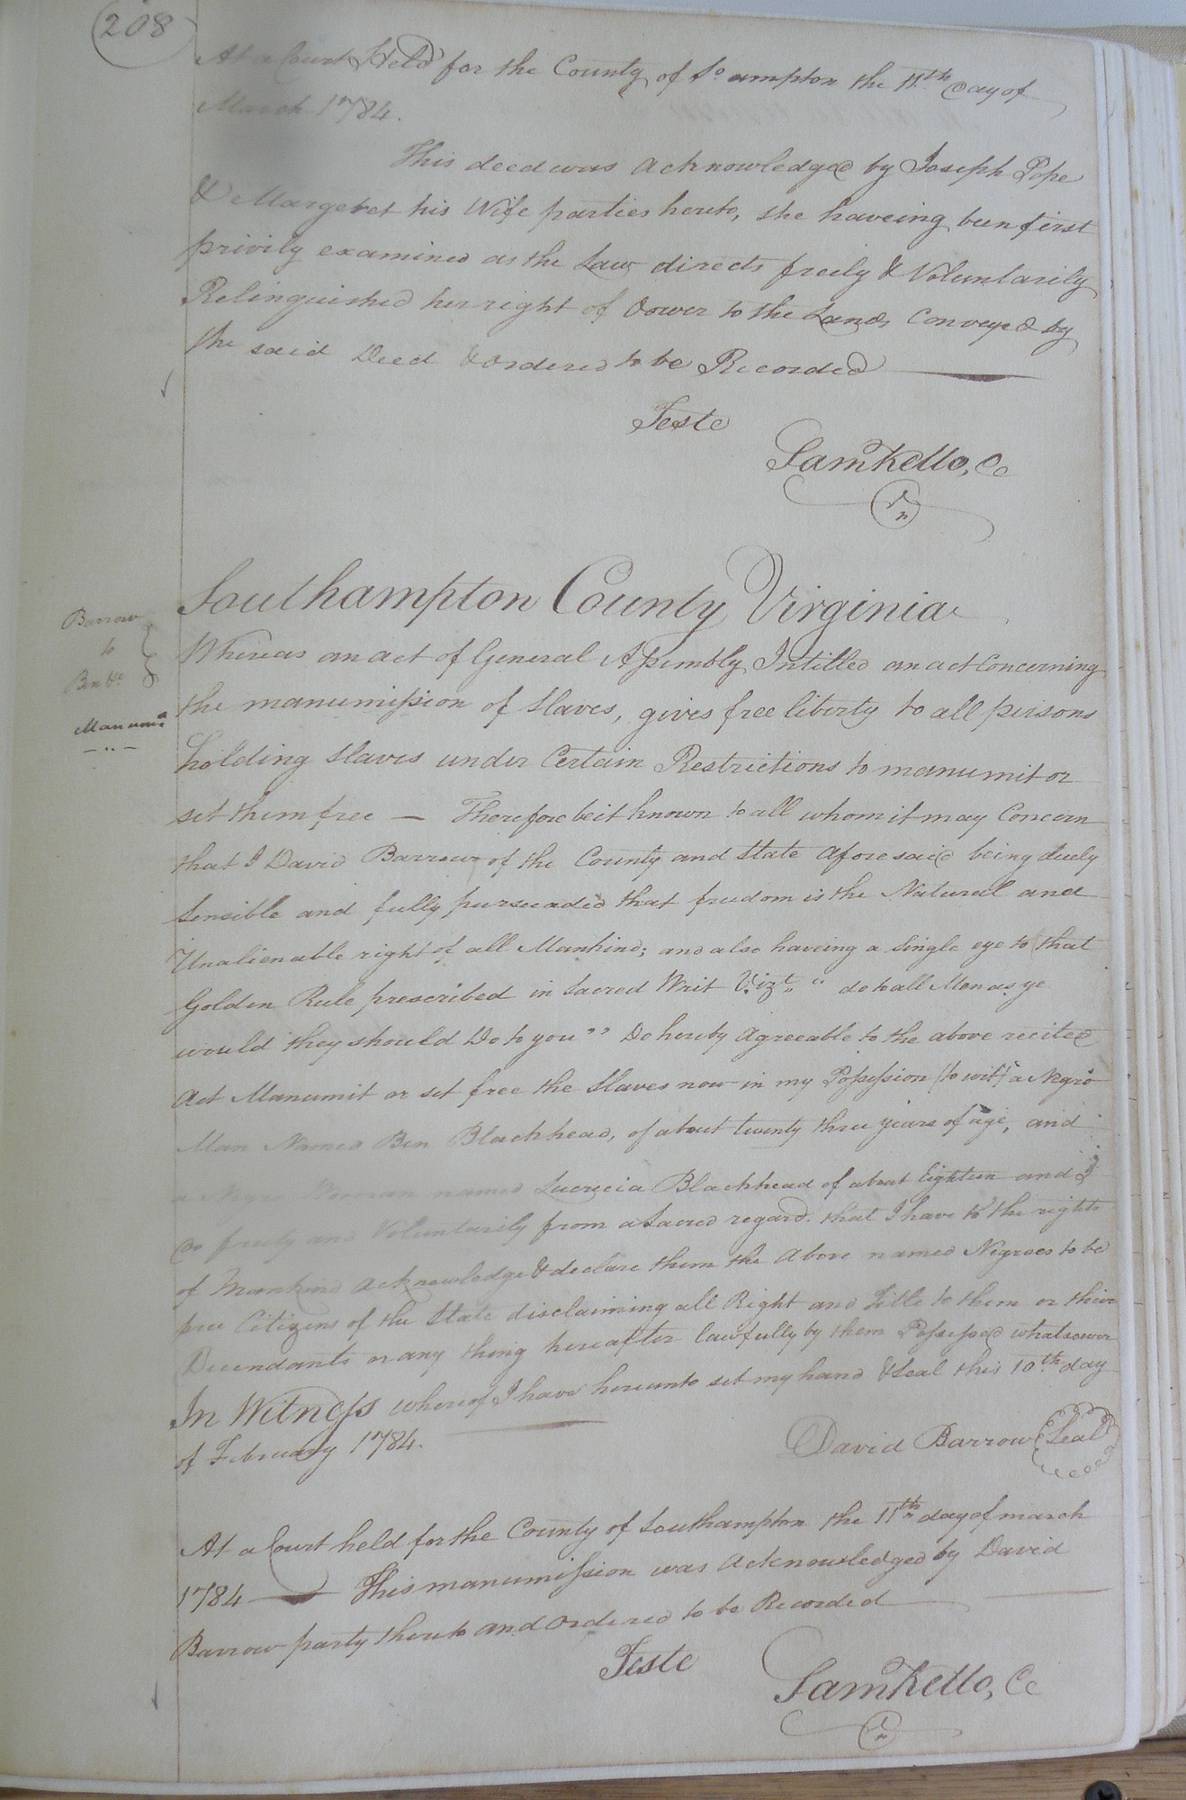 208
At a Court Held for the County of So ampton the 11th Day of
March 1784.
This deed was acknowledged by Joseph Pope
& Margeret his Wife parties hereto, she haveing been first
privily examined as the Law directs freely & Voluntarily
Relinguished her right of Dower to the Lands Conveyed by
the said Deed & ordered to be Recorded
Teste
Saml Kello, Cc
Southampton County Virginia
Barrow
to
Ben &c
Manumn
Whereas an act of General Assembly Intitled an act Concerning
the manumission of Slaves, gives free liberty to all persons
holding Slaves under Certain Restrictions to manumit or
set them free — Therefore be it known to all whom it may Concern
that I David Barrow of the County and State aforesaid being duely
Sensible and fully perseaded that freedom is the Natural and
Unalienable right of all Mankind; and also haveing a Single eye to that
Golden Rule prescribed in Sacred Writ Vizt. " do to all Men as ye
would they should Do to you" Do hereby agreeable to the above recited
act Manumit or set free the Slaves now in my Possession (to wit) a Negro
Man Named Ben Blackhead, of about twenty three years of age, and
a Negro Woman named Lucrecia Blackhead of about Eighteen and I
Do freely and Voluntarily from a Sacred regard that I have to the rights
of Mankind acknowledge & declare them the Above named Negroes to be
free Citizens of the State disclaiming all Right and Title to them or their
Decendants or any thing hereafter lawfully by them Possessed whatsoever
In Witness whereof I have hereunto set my hand & Seal this 10th day
of February 1784.
David Barrow Seal
At a Court held for the County of Southampton the 11th day of march
1784 — This manumission was acknowledged by David
Barrow party thereto and ordered to be Recorded
Teste
Saml Kello, Cc